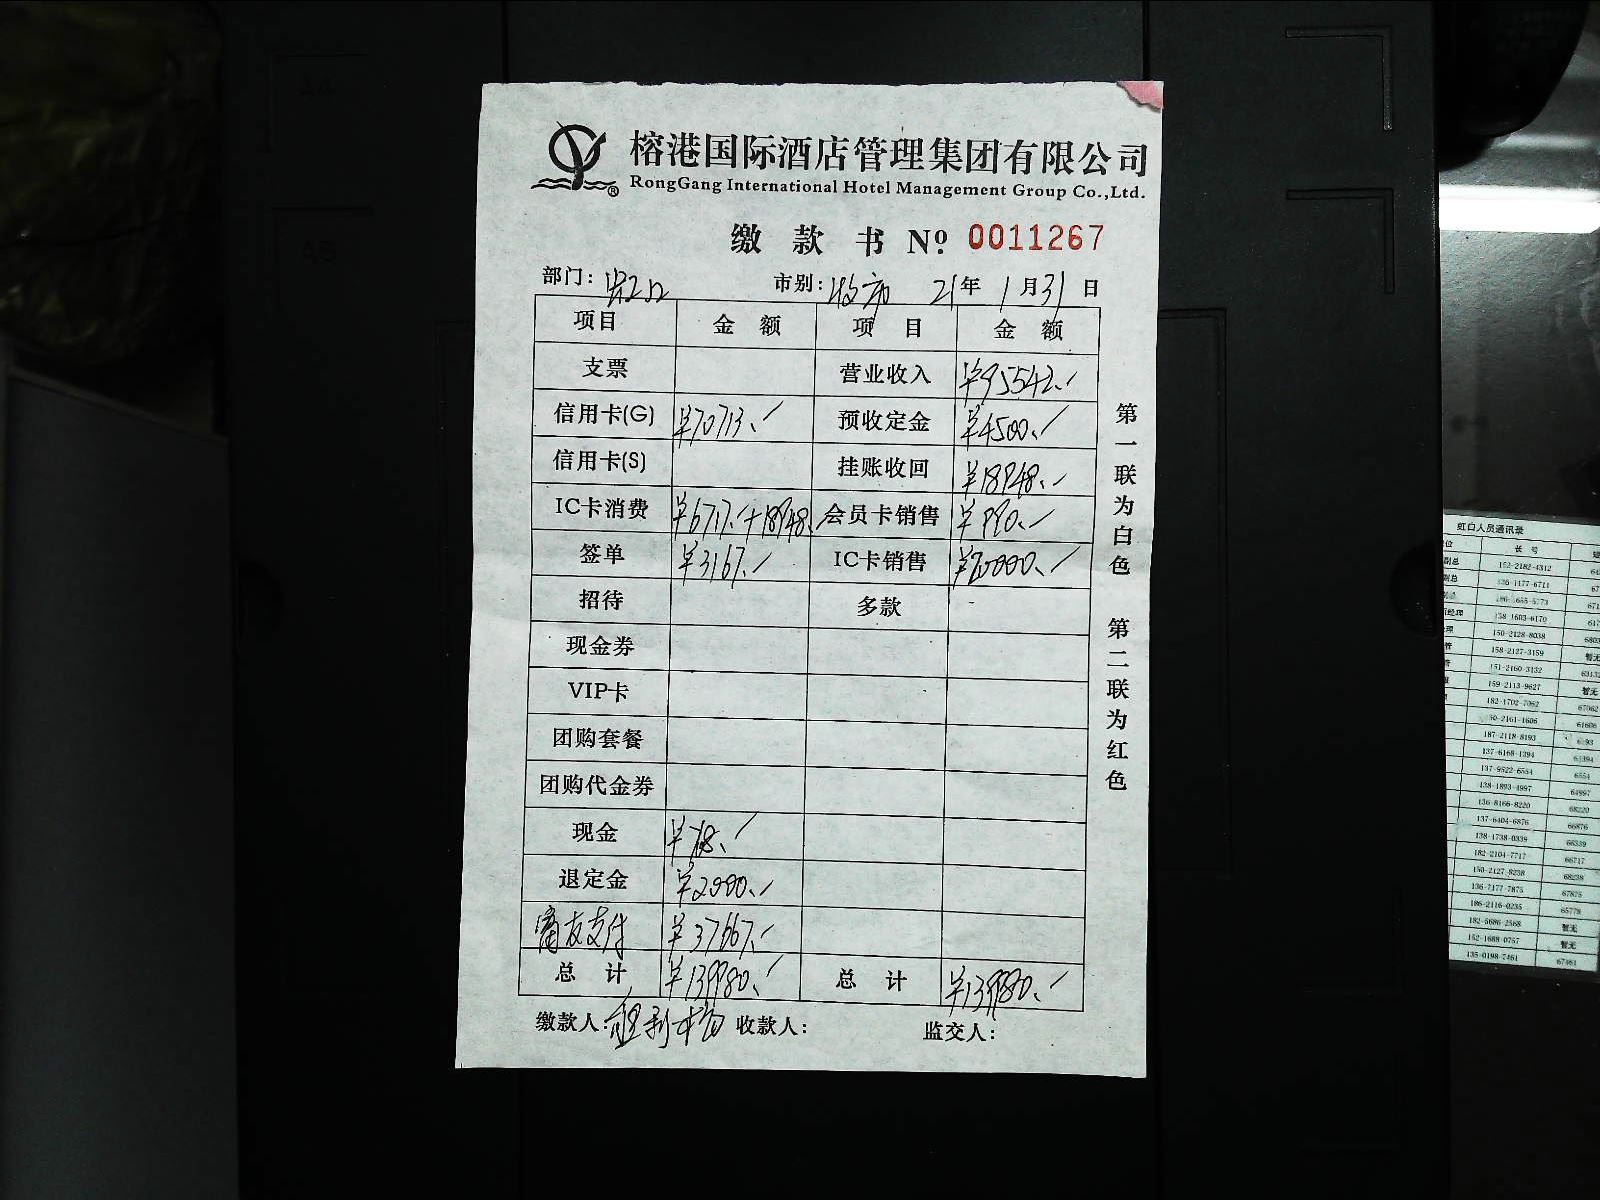 榕港国际酒店管理集团有限公司
RongGang International Hotel Management Group Co.,Ltd.
缴款书 Nº 0011267
部门: 市别: 21年 1月31日
项目 金额 项目 金额
支票 营业收入 ¥95542.
信用卡(G) ¥70713. 预收定金 ¥4500.
信用卡(S) 挂账收回 ¥18948.
IC卡消费 ¥6717.+18948. 会员卡销售 ¥990.
签单 ¥3167. IC卡销售 ¥20000.
招待 多款
现金券
VIP卡
团购套餐
团购代金券
现金 ¥768.
退定金 ¥2000.
富友支付 ¥37667.
总计 ¥139980. 总计 ¥139980.
缴款人: 收款人: 监交人:
第一联为白色 第二联为红色
人员通讯录
长号
152-2182-4312
136-1177-6711
138-1603-6170
150-2128-8038
158-2127-3159 暂无
151-2160-3132
159-2113-9627 暂无
182-1702-7062 67062
187-2118-8193
137-6168-1394 61394
137-9522-6554 6554
138-1893-4997 64997
136-8166-8220 68220
137-6404-6876 66876
138-1738-0339 66339
182-2104-7717 66717
150-2127-8238 68238
136-7177-7875 67875
186-2116-0235 65778
182-5686-2568 暂无
152-1688-0757 暂无
135-0198-7461 67461